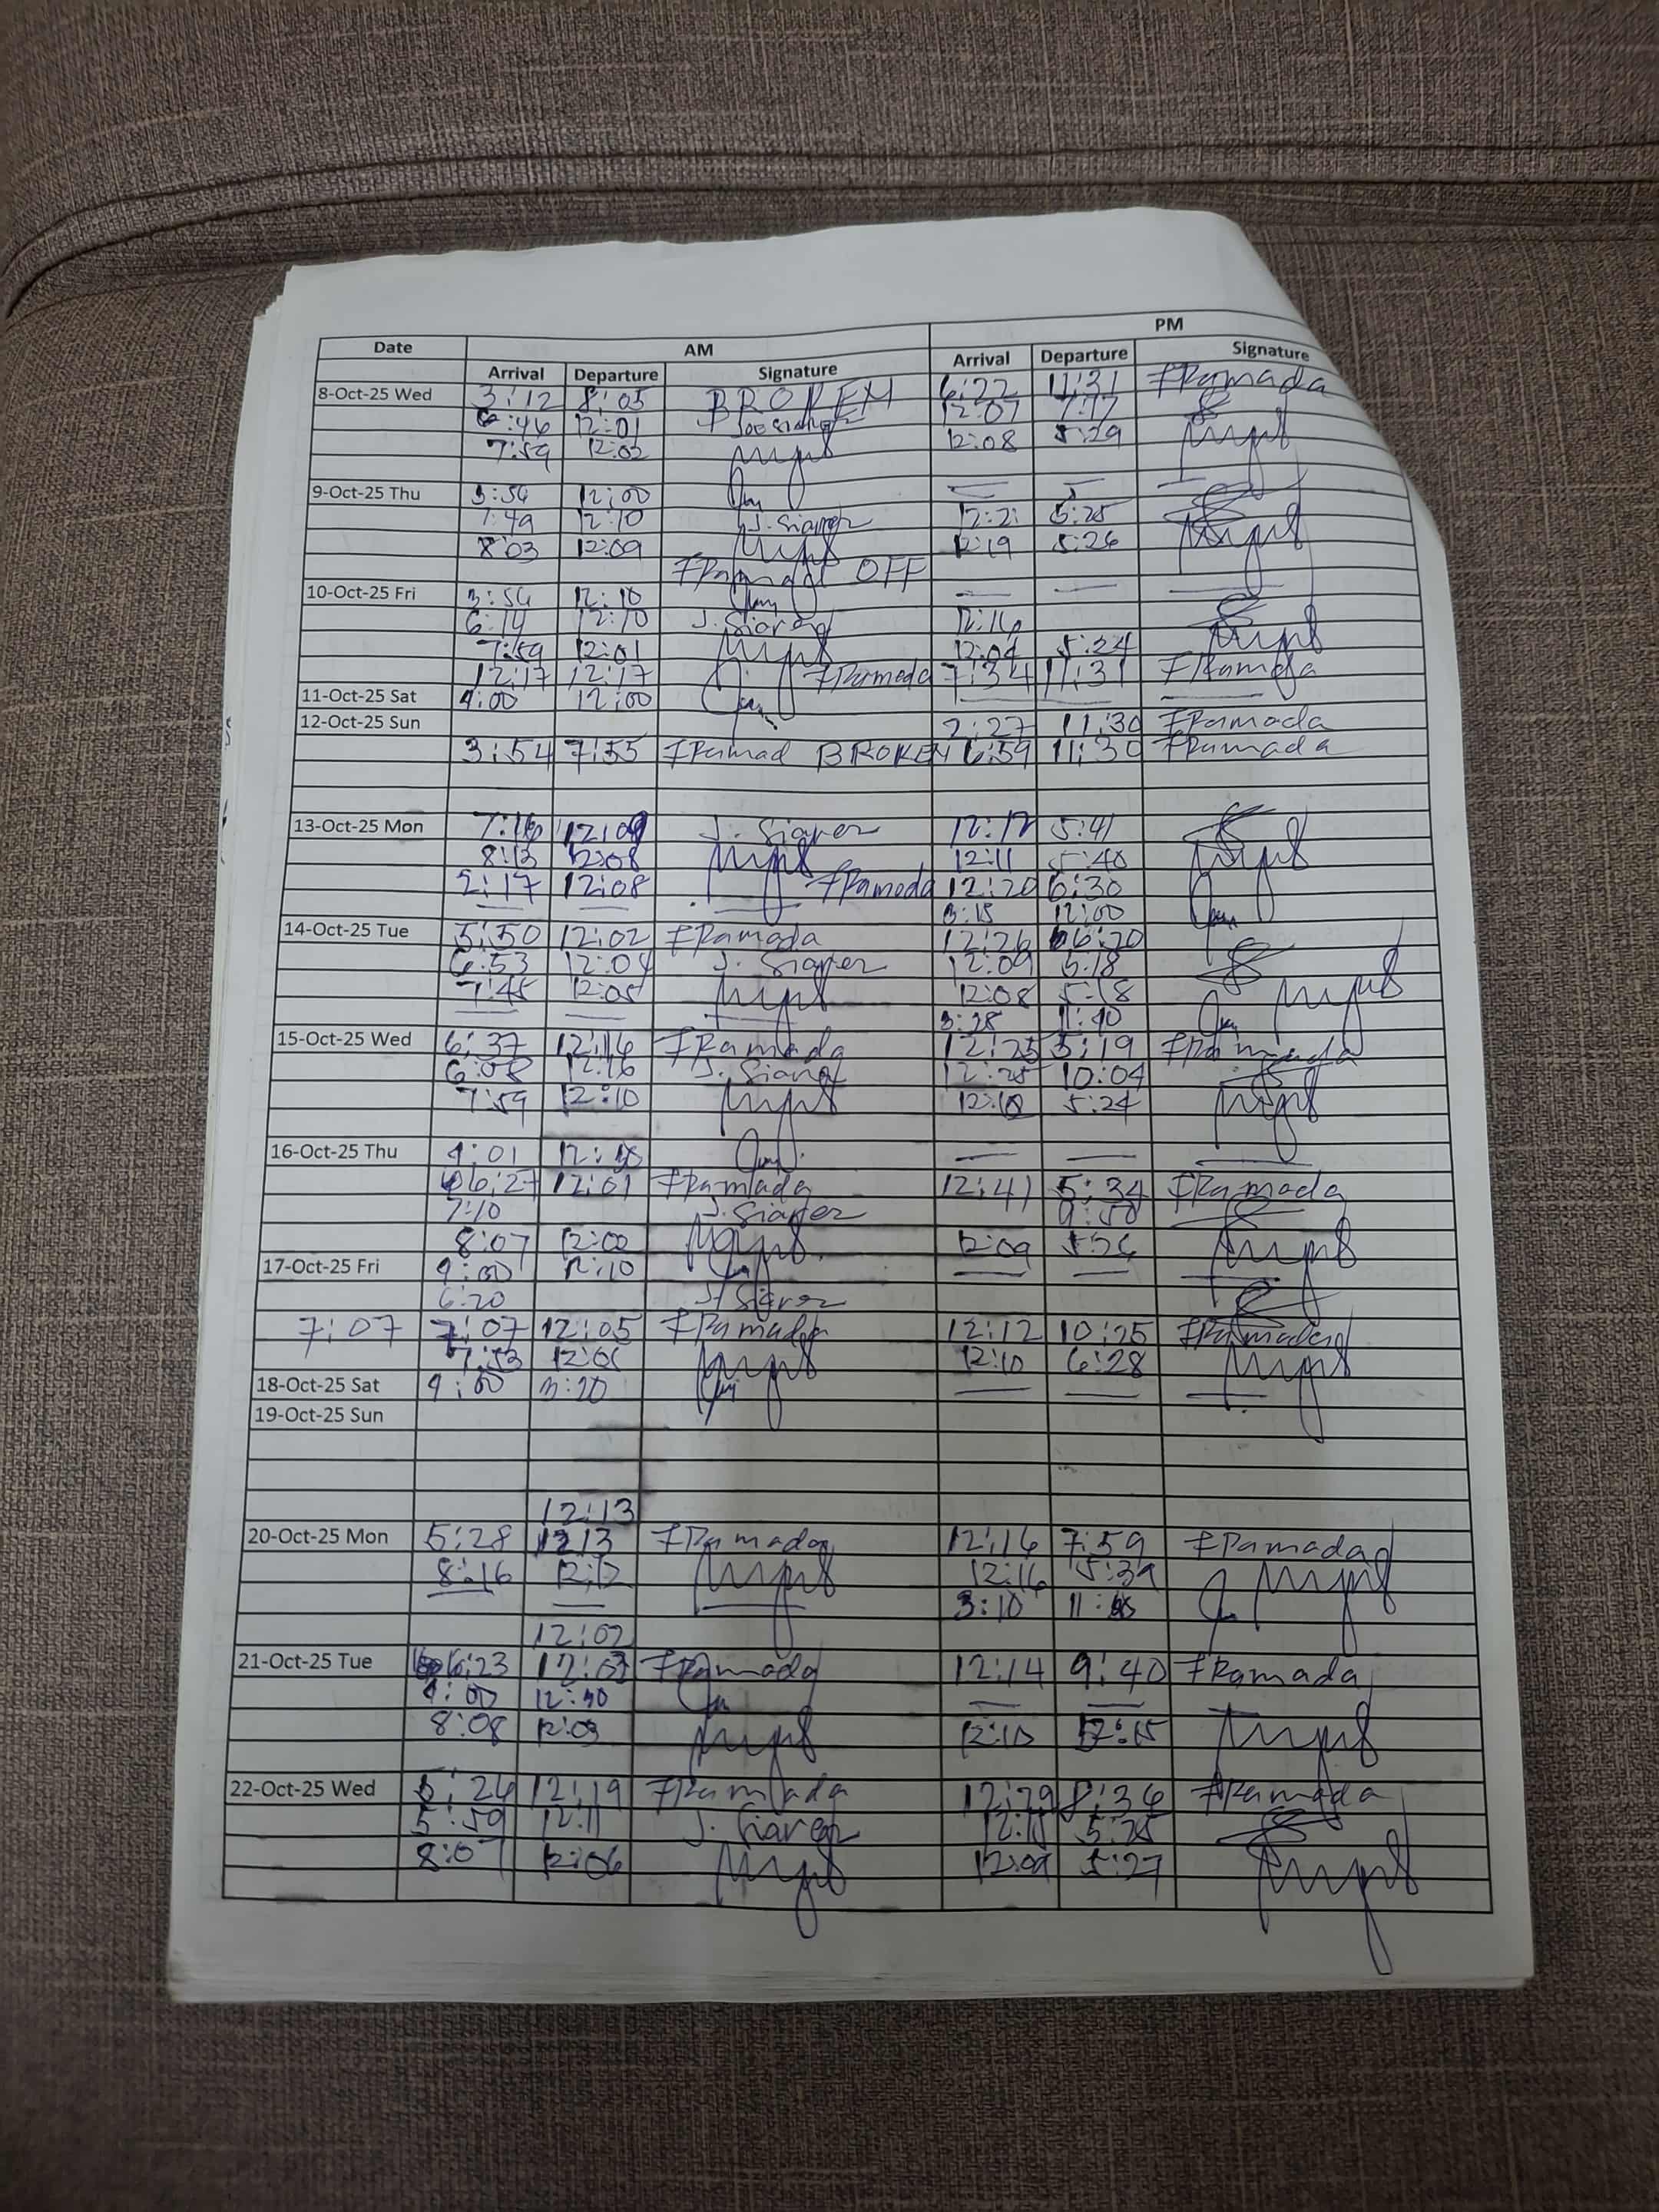 Date AM PM
Arrival Departure Signature Arrival Departure Signature
8-Oct-25 Wed 3:12 8:05 BROKEN 6:22 11:31 FRamada
6:46 12:01 12:07 7:17
7:59 12:02 12:08 5:29
9-Oct-25 Thu 3:54 12:00
7:49 12:10 J. Siarez 12:21 5:25
8:03 12:09 12:19 5:26
FRamada OFF
10-Oct-25 Fri 3:54 12:10
6:14 12:10 J. Siarez 12:16
7:59 12:01 12:04 5:24
12:17 12:17 FRamada 7:34 11:31 FRamada
11-Oct-25 Sat 4:00 12:00
12-Oct-25 Sun 2:27 11:30 FRamada
3:54 7:55 FRamad BROKEN 6:59 11:30 FRamada
13-Oct-25 Mon 7:16 12:09 J. Siarez 12:12 5:41
8:13 12:08 12:11 5:40
2:17 12:08 FRamada 12:20 6:30
3:15 12:00
14-Oct-25 Tue 5:50 12:02 FRamada 12:26 6:20
6:53 12:04 J. Siarez 12:09 5:18
7:45 12:05 12:08 5:18
3:28 11:40
15-Oct-25 Wed 6:37 12:16 FRamada 12:25 5:19 FRamada
6:08 12:16 J. Siarez 12:25 10:04
7:59 12:10 12:10 5:24
16-Oct-25 Thu 4:01
6:27 12:01 FRamada 12:41 5:34 FRamada
7:10 J. Siarez 9:50
8:07 12:00 12:09 5:26
17-Oct-25 Fri 4:00 12:10
6:20 J. Siarez
7:07 7:07 12:05 FRamada 12:12 10:25 FRamada
7:53 12:06 12:10 6:28
18-Oct-25 Sat 4:00 3:20
19-Oct-25 Sun
12:13
20-Oct-25 Mon 5:28 12:13 FRamada 12:16 7:59 FRamada
8:16 12:12 12:16 5:39
3:10
12:02
21-Oct-25 Tue 6:23 12:03 FRamada 12:14 9:40 FRamada
4:00 12:30
8:08 12:03 12:10
22-Oct-25 Wed 5:26 12:19 FRamada 12:29 8:36 FRamada
5:59 12:11 J. Siarez 12:15 5:25
8:07 12:06 12:09 5:27